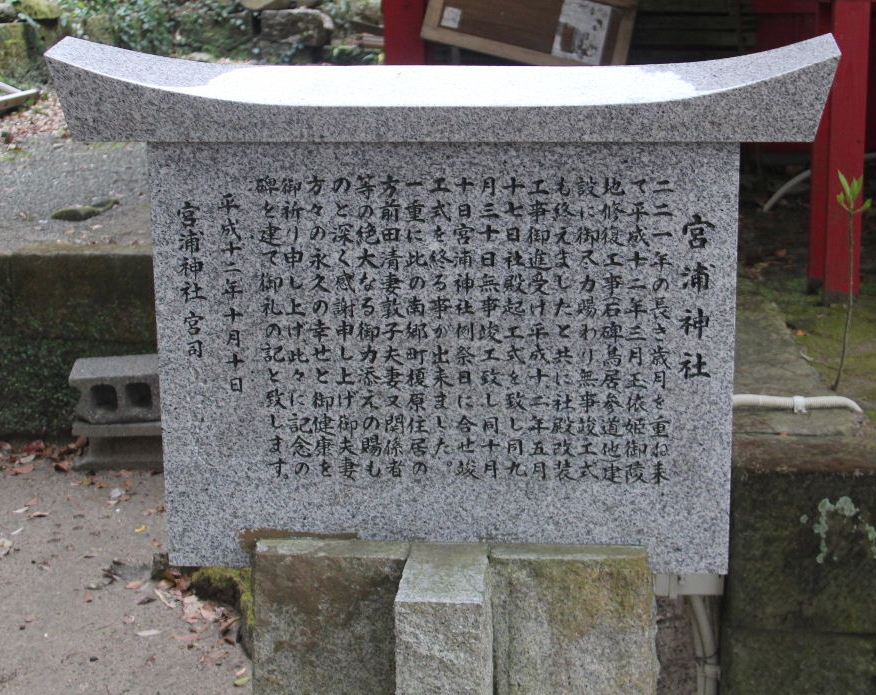 宮浦神社
二二一年の長き歳月を重ね来
て平成十二年三月玉依姫御陵
地修復工事石碑鳥居参道他建
設に御尽力賜わり無事竣工式
も終えましたと共に社殿改装
工事御進受け平成十二年五月
十七日社殿起工式を致し同九
月三十日無事竣工致し同十月
十日宮浦神社例祭日に合せ竣
工式を終る事が出来ました。
一重に此の南郷町榎原住居の
方前田清妻敦子夫妻又関係者
等の絶大なる御力添えの賜も
のと深く感謝申し上げ御夫妻
方々の永久の幸せと御健康を
御祈り申し上げ此々に記念の
碑を建て御礼の記と致します。
平成十二年十月十日
宮浦神社 宮司